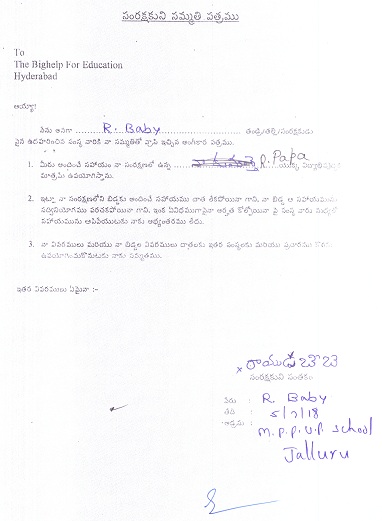 సంరక్షకుని సమ్మతి పత్రము
To
The Bighelp For Education
Hyderabad
అయ్యా!
నేను అనగా R. Baby తండ్రి/తల్లి/సంరక్షకుడు
పైన ఉదహరించిన సంస్థ వారికి నా సమ్మతితో వ్రాసి ఇచ్చిన అంగీకార పత్రము.
1. మీరు అందించే సహాయం నా సంరక్షణలో ఉన్న R. Papa యొక్క
మాత్రమే ఉపయోగిస్తాను.
2. ఇట్లా నా సంరక్షణలోని బిడ్డకు అందించే సహాయము దాత లేకపోయినా గాని, నా బిడ్డ ఆ సహాయమును
సద్వినియోగము పరచకపోయినా గాని, ఇంక ఏవిధముగానైనా అర్హత కోల్పోయినా పై సంస్థ వారు
సహాయమును ఆపివేయుటకు నాకు అభ్యంతరము లేదు.
3. నా వివరములు మరియు నా బిడ్డల వివరములు దాతలకు ఇతర సంస్థలకు మరియు ప్రచారము కొరకు
ఉపయోగించుకొనుటకు నాకు సమ్మతము.
ఇతర వివరములు ఏమైనా :-
x రాయుడి బేబి
సంరక్షకుని సంతకం
పేరు : R. Baby
తేది : 5/7/18
గ్రామం : M.P.P.U.P. School
Jalluru